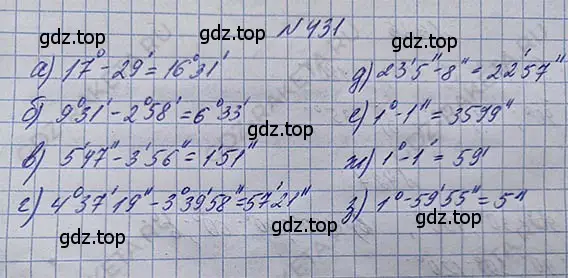 № 431
gdz.top gdz.top
а) 17° - 29' = 16°31'
д) 23'5" - 8" = 22'57"
б) 9°31' - 2°58' = 6°33'
gdz.top
е) 1° - 1" = 3599"
в) 5'47" - 3'56" = 1'51"
ж) 1° - 1' = 59'
gdz.top gdz.top
г) 4°37'19" - 3°39'58" = 57'21"
з) 1° - 59'55" = 5"
gdz.top gdz.top